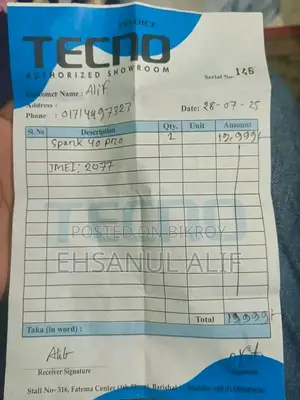 INVOICE
TECNO
AUTHORIZED SHOWROOM
Serial No- 146
Customer Name : Alif
Address :
Phone : 01714497323
Date: 28-07-25
Sl. No Description Qty. Unit Amount
Spark 40 pro 1 19,999/
IMEI: 2077
POSTED ON BIKROY
EHSANUL ALIF
Total 19999/
Taka (in word) :
Alif
Receiver Signature
Signature
Stall No- 316, Fatema Center Barishal